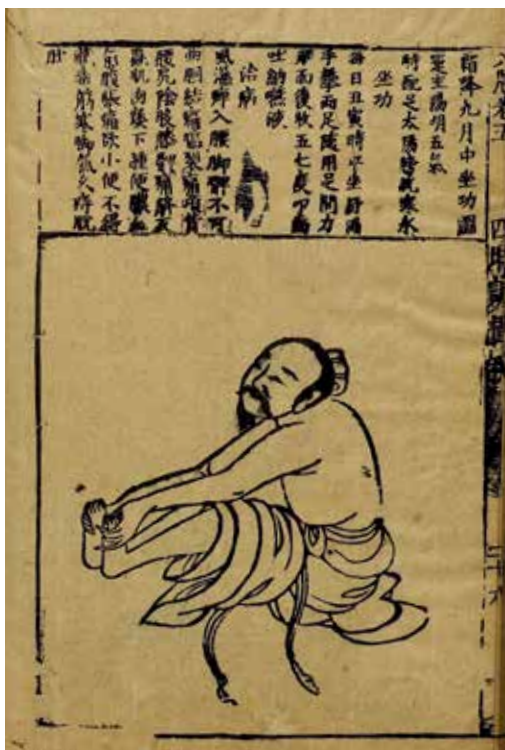 霜降九月中坐功圖
運主陽明五氣
時配足太陽膀胱寒水
坐功
每日丑寅時平坐舒兩
手攀兩足隨用足間力
縱而復收五七度叩齒
吐納嚥液
治病
風濕痺入腰脚髀不可
曲膕結痛腨裂痛項背
腰尻陰股膝髀痛臍反
蟲肌肉痿下腫便膿血
小腹脹痛欲小便不得
藏毒筋寒脚氣久痔脫
肛